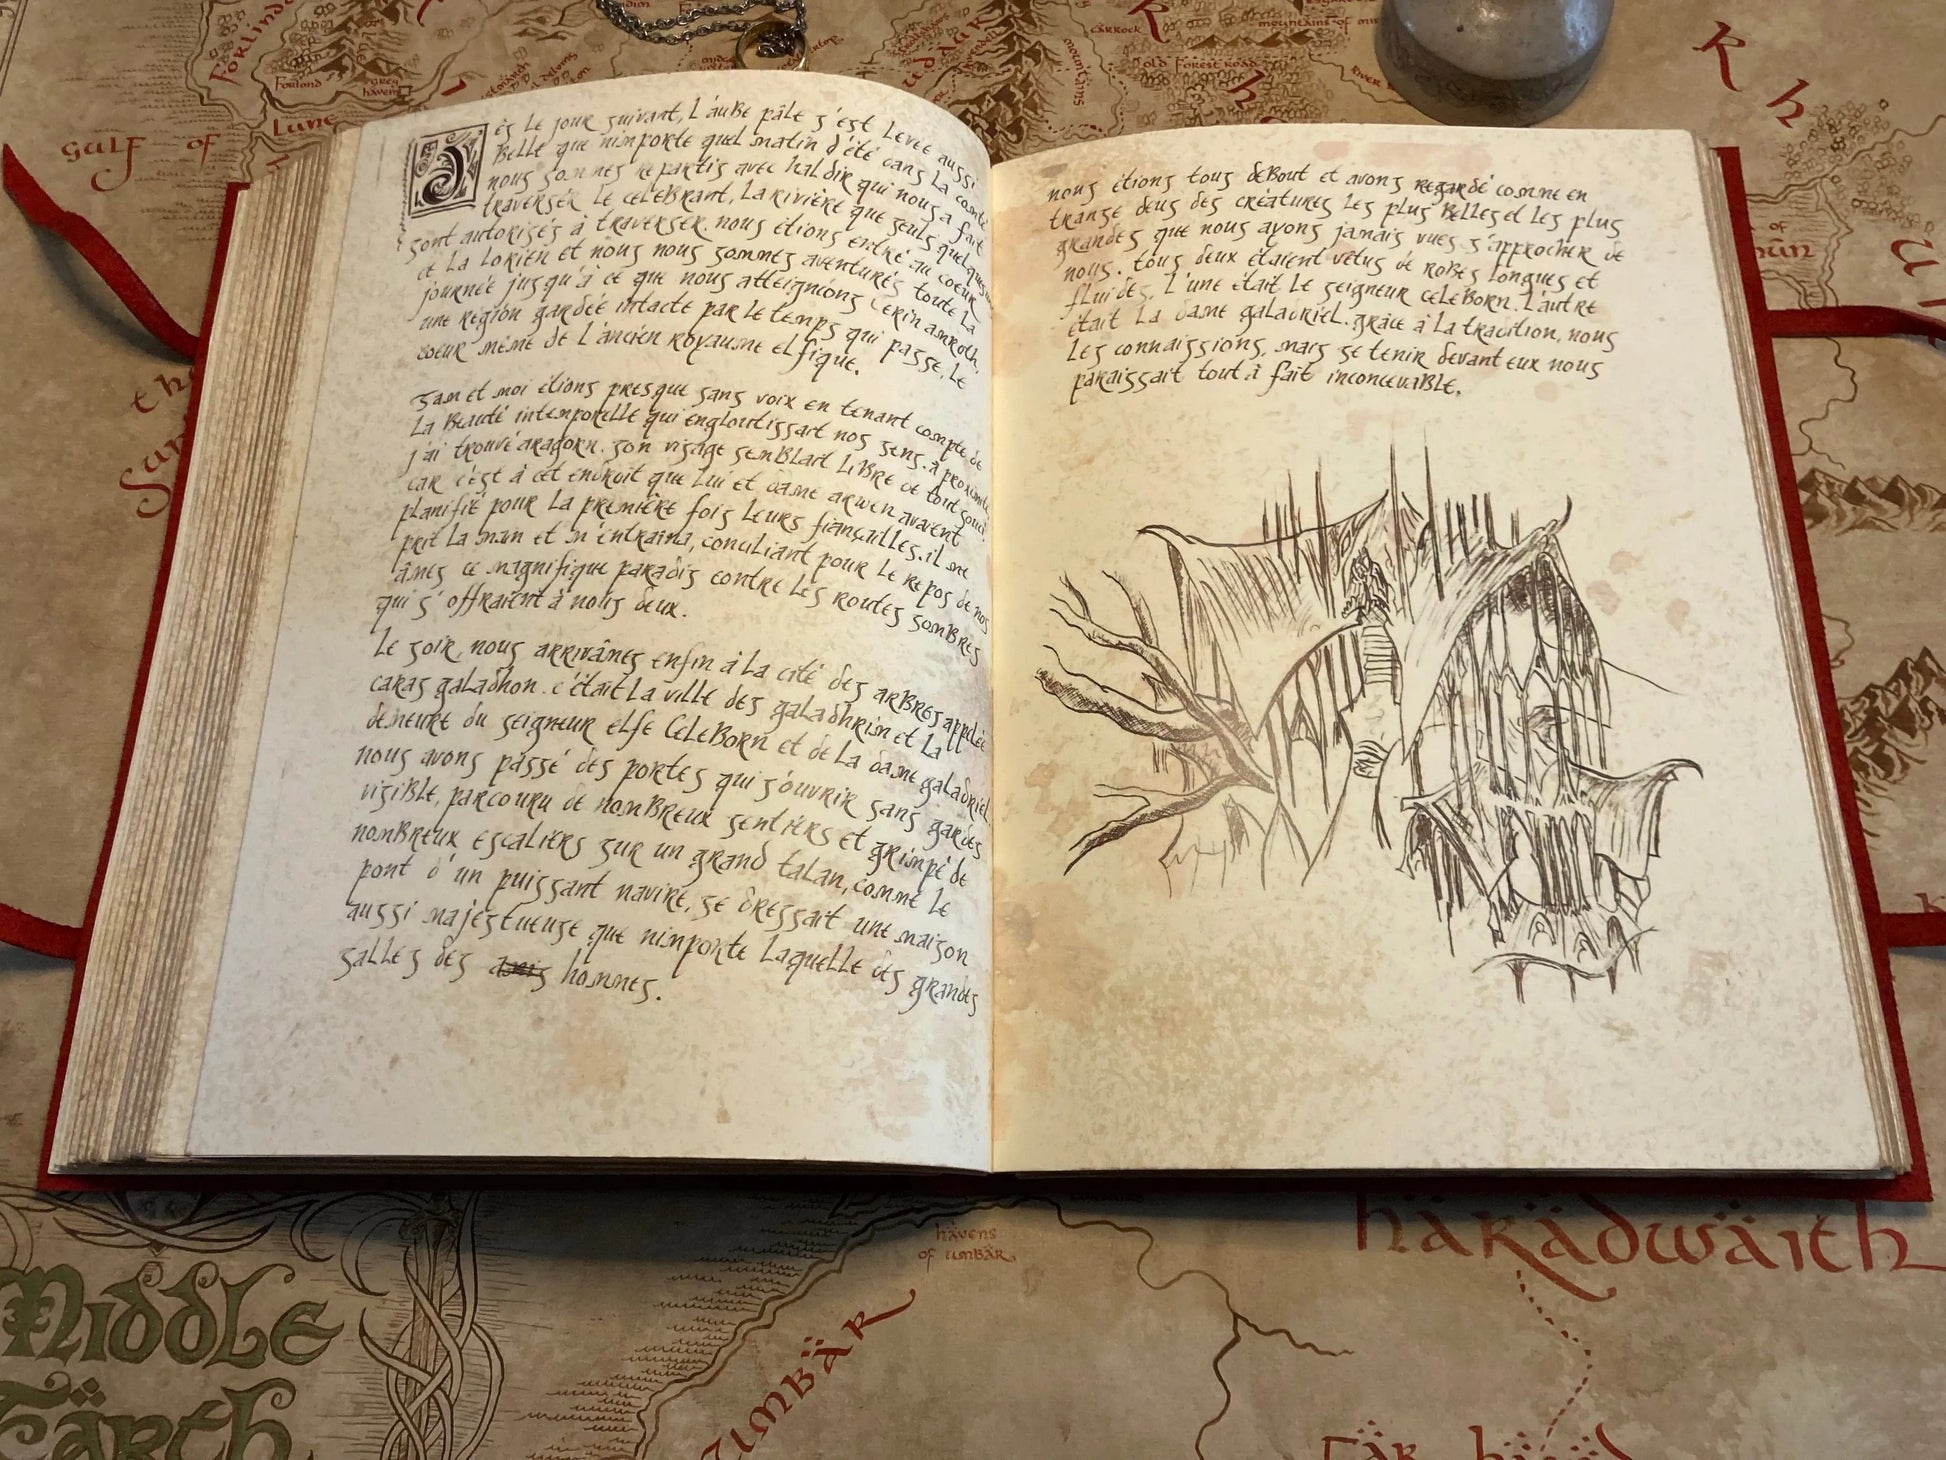 Dès le jour suivant, l'aube pâle s'est levée aussi
belle que nimporte quel matin d'été dans la comté
nous sommes repartis avec haldir qui nous a fait
traverser le celebrant, la rivière que seuls quelques uns
sont autorisés à traverser. nous étions entré au coeur
de la lorien et nous nous sommes aventurés toute la
journée jusqu'à ce que nous atteignions cerin amroth,
une region gardée intacte par le temps qui passe, le
coeur même de l'ancien royaume elfique.
sam et moi étions presque sans voix en tenant compte de
la beauté intemporelle qui engloutissait nos sens. à proximité
j'ai trouvé aragorn. son visage semblait libre de tout souci,
car c'est à cet endroit que lui et dame arwen avaient
planifié pour la première fois leurs fiançailles. il me
prit la main et m'entraina, conciliant pour le repos de nos
âmes ce magnifique paradis contre les routes sombres
qui s'offraient à nous deux.
le soir, nous arrivâmes enfin à la cité des arbres appelée
caras galadhon. c'était la ville des galadhrim et la
demeure du seigneur elfe celeborn et de la dame galadriel
nous avons passé des portes qui s'ouvrir sans gardes
visible, parcouru de nombreux sentiers et grimpé de
nombreux escaliers sur un grand talan, comme le
pont d'un puissant navire, se dressait une maison
aussi majestueuse que nimporte laquelle des grandes
salles des amis hommes.
nous étions tous debout et avons regardé comme en
transe deus des créatures les plus belles et les plus
grandes que nous ayons jamais vues s'approcher de
nous. tous deux étaient vêtus de robes longues et
fluides. l'une était le seigneur celeborn. l'autre
était la dame galadriel. grâce à la tradition, nous
les connaissions, mais se tenir devant eux nous
paraissait tout à fait inconcevable.
gulf of lune
Forlond
grey havens
carrock
old forest road
mountains of
mountains
River
havens of umbar
haradwaith
umbar
Middle
Earth
far harad